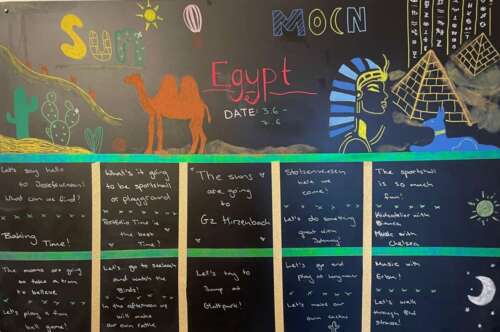 Sun MOON
Egypt
DATE: 3.6 -
7.6
Let's say hello
to Josefwiesen!
What can we find?
Baking
Time!
What's it going
to be sportshall
or playground
Portfolio Time is
the best
Time!
The suns are
going
to
Gz Hirzenbach
Stolzenwiesen
here we
come!
Let's do something
great with
The sportshall
is so much
fun!
Kidsatelier with
Bianca
Music with
Chelsea
The moons are going
to take a train
to
Let's play a fun
ball game!
Let's go to
and watch the
Birds!
In the afternoon we
will make
our own
Let's try to
Jump at
Glattpark!
Let's go and
play at
Let's make our
own cactus
Music with
Let's walk
through